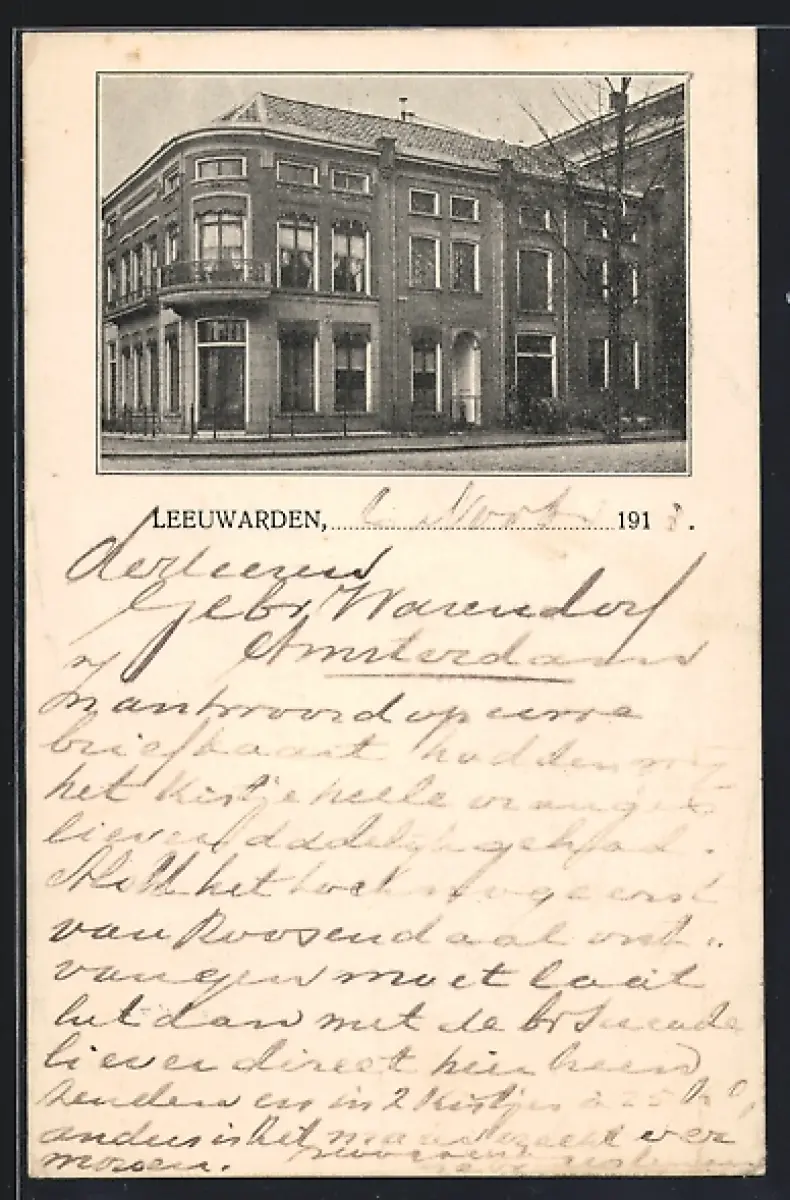 LEEUWARDEN, Nov 191
de Heeren
Gebr Warendorf
Amsterdam
In antwoord op uwe
briefkaart hadden wij
het kistje heele oranges
liever dadelijk gehad.
Als U het toch nog eerst
van Roosendaal ont-
vangen moet laat
het dan met de
liever direct hierheen
zenden en in 2 kistjes à 25
anders is het maar weer ver